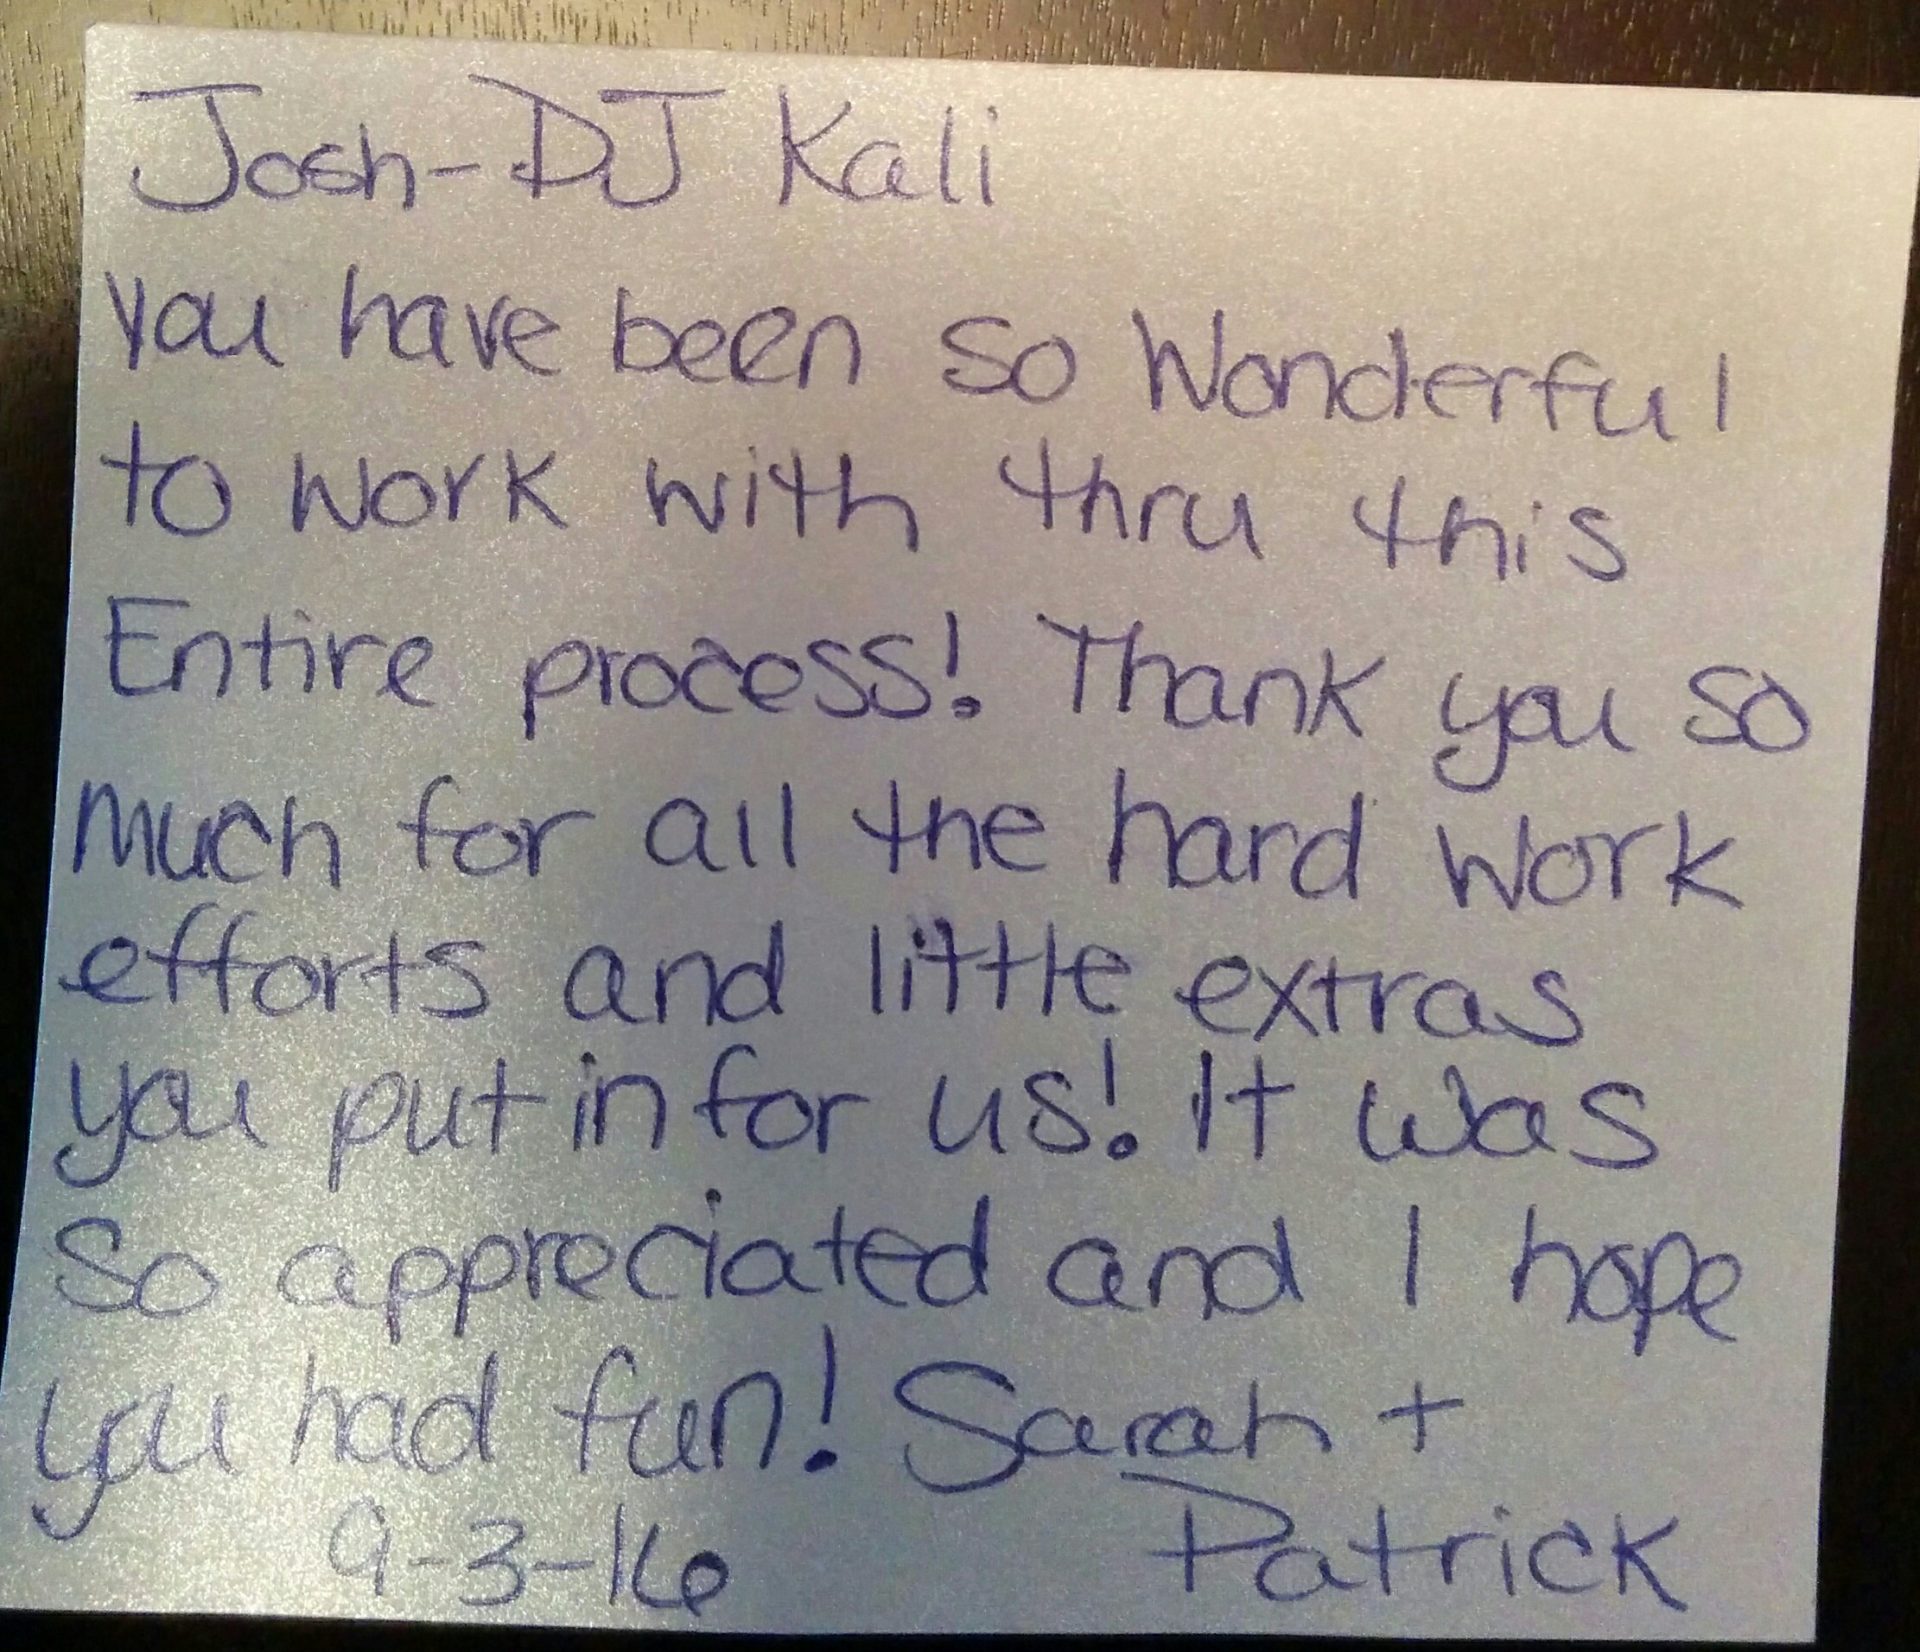 Josh-DJ Kali
you have been so Wonderful
to work with thru this
Entire process! Thank you so
much for all the hard work
efforts and little extras
you put in for us! It was
So appreciated and I hope
you had fun! Sarah +
Patrick
9-3-16